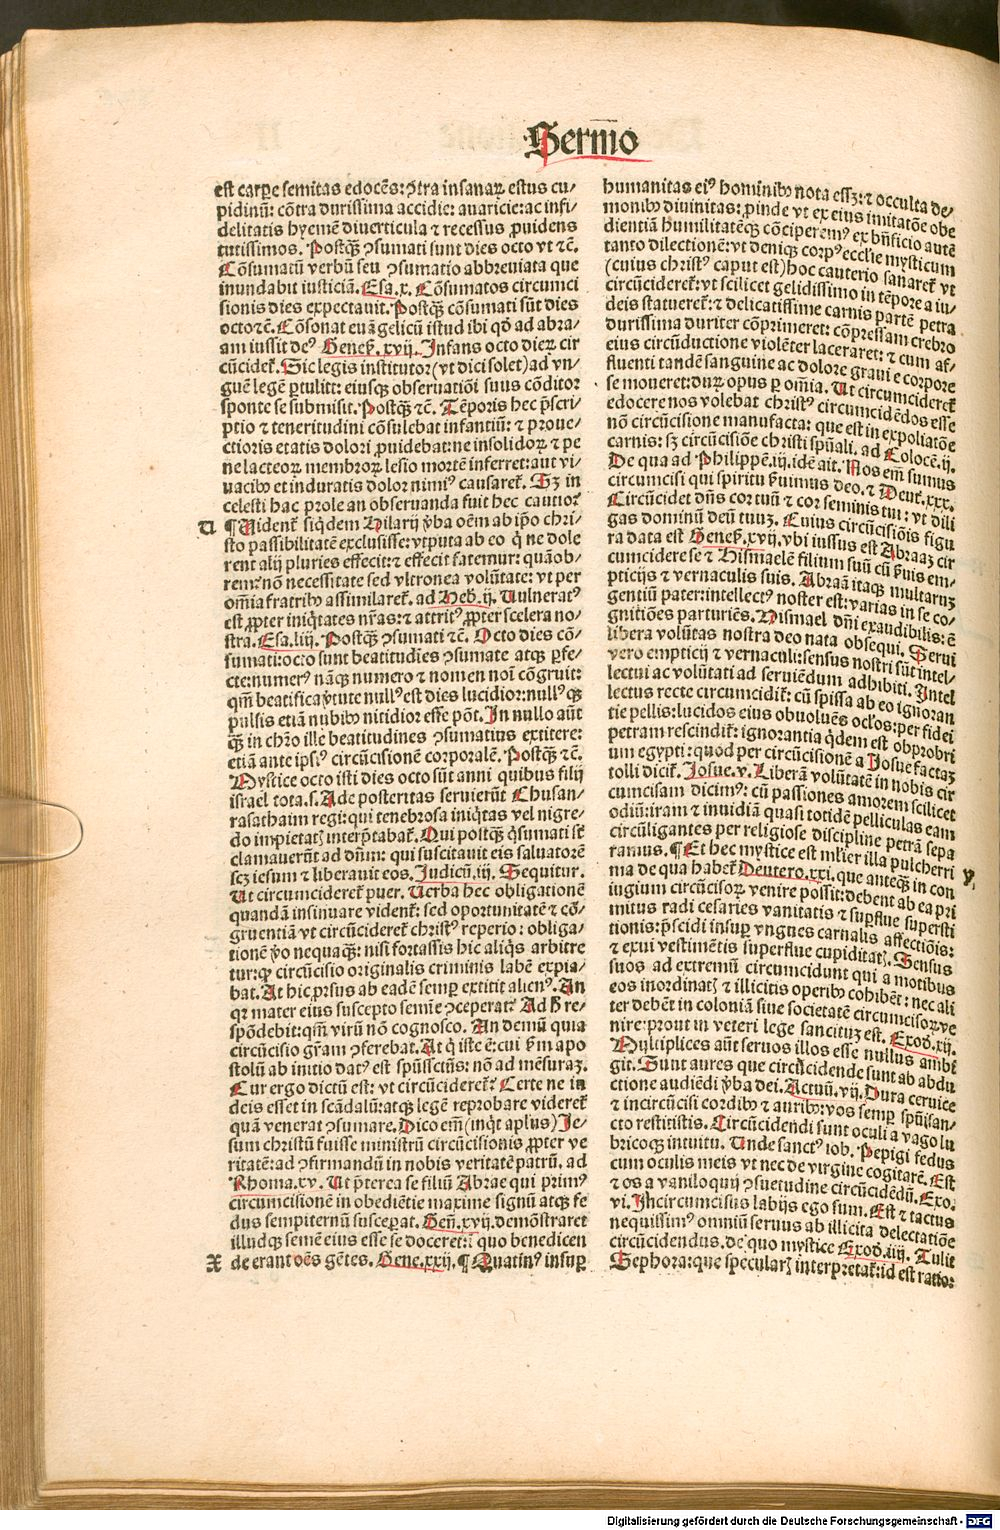 Sermo
est carpe semitas edocēs: ꝯtra insanaꝝ estus cu⸗
pidinū: cōtra durissima accidie: auaricie: ac infi⸗
delitatis hyemē diuerticula ⁊ recessus ꝓuidens
tutissimos. Postqꝫ ꝯsumati sunt dies octo vt ⁊c̄.
Cōsumatū verbū seu ꝯsumatio abbreuiata que
inundabit iusticiā. Esa. x. Cōsumatos circumci
sionis dies expectauit. Postqꝫ cōsumati sūt dies
octo ⁊c̄. Cōsonat euāgelicū istud ibi qd̓ ad abra⸗
am iussit deꝰ Geneſ. xvij. Infans octo dieꝝ cir
cūcidet̄. Sic legis institutor (vt dici solet) ad vn⸗
guē legē ꝑtulitt: eiusqꝫ obseruatiōi suus cōditor
sponte se submisit. Postqꝫ ⁊c̄. Tēporis hec p̄scri⸗
ptio ⁊ teneritudini cōsulebat infantiū: ⁊ proue⸗
ctioris etatis dolori ꝓuidebat: ne insolidoꝝ ⁊ pe
ne lacteoꝝ membroꝝ lesio mortē inferret: aut vi⸗
uacibꝰ et induratis dolor nimiꝰ causaret̄. Sꝫ in
celesti hac prole an obseruanda fuit hec cautio?
U ¶ Uident̄ siq̇dem Hilarij ꝟba oēm ab ip̄o chri⸗
sto passibilitatē exclusisse: vtputa ab eo q̇ ne dole
rent alij pluries effecit: ⁊ effecit fatemur: quāob⸗
rem? nō necessitate sed vltronea volūtate: vt per
om̄ia fratribꝰ assimilaret̄. ad Heb. ij. Uulneratꝰ
est ꝓpter iniq̇tates nr̄as: ⁊ attritꝰ ꝓpter scelera no⸗
stra. Esa. liij. Postqꝫ ꝯsumati ⁊c̄. Octo dies cō⸗
sumati: octo sunt beatitudies ꝯsumate atqꝫ ꝑfe⸗
cte: numerꝰ nāqꝫ numero ⁊ nomen noī cōgruit:
qm̄ beatifica ꝟtute nullꝰ est dies lucidior: nullꝰ qꝫ
pulsis etiā nubibꝰ nitidior esse pōt. In nullo aūt
qꝫ in chr̄o ille beatitudines ꝯsumatius extitere:
etiā ante ipsiꝰ circūcisionē corporalē. Postqꝫ ⁊c̄.
Mystice octo isti dies octo sūt anni quibus filij
israel tota. s. Ade posteritas seruierūt Chusan⸗
rasathaim regi: qui tenebrosa iniq̇tas vel nigre⸗
do impietatꝭ interp̄tabat̄. Qui postqꝫ ꝯsumati sūt
clamauerūt ad dn̄m: qui suscitauit eis saluatorē
scꝫ iesum ⁊ liberauit eos. Judicū. iij. Sequitur.
Ut circumcideret̄ puer. Uerba hec obligationē
quandā insinuare vident̄: sed oportunitatē ⁊ cō⸗
gruentiā vt circūcideret̄ christꝰ reperio: obliga⸗
tionē ꝟo nequaqꝫ: nisi fortassis hic aliq̇s arbitre
tur: ꝙ circūcisio originalis criminis labē expia⸗
bat. At hic ꝓrsus ab eadē semꝑ extitit alienꝰ. An
qꝛ mater eius suscepto semīe ꝯceperat? Ad hec re⸗
spōdebit: qm̄ virū nō cognosco. An demū quia
circūcisio gr̄am ꝯferebat. At q̇ iste ē: cui ꝟm apo
stolū ab initio datꝰ est spūssctūs: nō ad mēsurā.
Cur ergo dictū est: vt circūcideret̄? Certe ne in
deis esset in scādalū: atqꝫ legē reprobare videret̄
quā venerat ꝯsumare. Dico em̄ (inq̇t ap̄lus) Je⸗
sum christū fuisse ministrū circūcisionis ꝓpter ve
ritatē: ad ꝯfirmandū in nobis veritatē patrū. ad
Rhoma. xv. Ut p̄terea se filiū Abrae qui primꝰ
circumcisionē in obediētie maxime signū atqꝫ fe
dus sempiternū susceꝑat. Geñ. xvij. demōstraret
illudqꝫ semē eius esse se doceret: ī quo benedicen
X de erant oēs gētes. Gene. xxij. ¶ Quatinꝰ insuꝑ
humanitas eiꝰ hominibꝰ nota essꝫ: ⁊ occulta de⸗
monibꝰ diuinitas: ꝓinde vt ex eius imitatōe obe
dientiā humilitatēqꝫ cōciperemꝰ ex bn̄ficio autē
tanto dilectionē: vt deniqꝫ corpꝰ ecclie mysticum
(cuius christꝰ caput est) hoc cauterio sanaret̄ vt
circūcideret̄: vt scilicet gelidissimo in tēpore a iu⸗
deis statueret̄: ⁊ delicatissime carnis partē petra
durissima duriter cōprimeret: cōpressam crebro
eius circūductione violēter laceraret: ⁊ cum af⸗
fluenti tandē sanguine ac dolore graui e corpore
se moueret: duꝝ opus ꝑ om̄ia. Ut circumcideret̄
edocere nos volebat christꝰ circumcidēdos esse
nō circūcisione manufacta: que est in expoliatōe
carnis: sꝫ circūcisiōe christi spūali. ad Colocē. ij.
De qua ad Philippē. iij. idē ait. Nos em̄ sumus
circumcisi qui spiritu ẜuimus deo. ⁊ Deut̄. xxx.
Circūcidet dn̄s cor tuū ⁊ cor seminis tui: vt dili
gas dominū deū tuuꝫ. Cuius circūcisiōis figu
ra data est Geneſ. xvij. vbi iussus est Abraaꝫ cir
cumcidere se ⁊ Hismaelē filium suū cū ẜuis em⸗
pticijs ⁊ vernaculis suis. Abraā itaqꝫ multaruꝫ
gentiū pater: intellectꝰ noster est: varias in se co⸗
gnitiōes parturiēs. Hismael dn̄i exaudibilis: ē
libera volūtas nostra deo nata obsequi. Serui
vero empticij ⁊ vernaculi: sensus nostri sūt intel⸗
lectui ac volūtati ad seruiēdum adhibiti. Intel
lectus recte circumcidit̄: cū spissa ab eo ignoran
tie pellis: lucidos eius obuoluēs oc̄los: per fidei
petram rescindit̄: ignorantia q̇dem est obprobri
um egypti: quod per circūcisionē a Josue factaꝫ
tolli dicit̄. Josue. v. Liberā volūtatē in nobis cir
cumcisam dicimꝰ: cū passiones amorem scilicet
odiū: iram ⁊ inuidiā quasi totidē pelliculas eam
circūligantes per religiose discipline petrā sepa
ramus. ¶ Et hec mystice est mr̄ier illa pulcherri
ma de qua habet̄ Deutero. xxi. que anteqꝫ in con y
iugium circūcisoꝝ venire possit: debent ab ea pri
mitus radi cesaries vanitatis ⁊ suꝑflue supersti
tionis: p̄scidi insuꝑ vngues carnalis affectiōis:
⁊ exui vestimētis superflue cupiditatꝭ. Sensus
suos ad extremū circumcidunt qui a motibus
eos inordinatꝭ ⁊ illicitis operibꝰ cohibēt: nec ali
ter debēt in coloniā siue societatē circumcisoꝝ ve
nire: prout in veteri lege sancituꝫ est. Exod̓. xij.
Myltiplices aūt seruos illos esse nullus ambi
git. Sunt aures que circūcidende sunt ab abdu
ctione audiēdi ꝟba dei. Actuū. vij. Dura ceruice
⁊ incircūcisi cordibꝰ ⁊ auribꝰ: vos semꝑ spūisan⸗
cto restitistis. Circūcidendi sunt oculi a vago lu
bricoqꝫ intuitu. Unde sanctꝰ iob. Pepigi fedus
cum oculis meis vt nec de virgine cogitarē. Est
⁊ os a vaniloquij ꝯsuetudine circūcidēdū. Exo.
vi. Incircumcisus labijs ego sum. Est ⁊ tactus
nequissimꝰ omniū seruus ab illicita delectatiōe
circūcidendus. de quo mystice Exod̓. iiij. Tulit
Sephora: que specularꝭ interpretat̄: id est ratio:
Digitalisierung gefördert durch die Deutsche Forschungsgemeinschaft - DFG